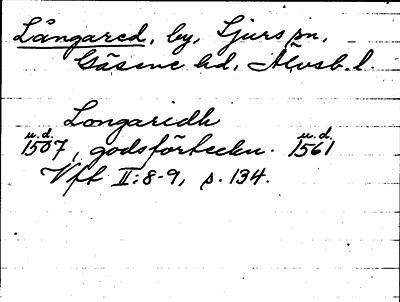 Långared, by, Ljurs sn,
Gäsene hd, Älvsb. l.
Longaridh
u.d. u.d.
1507, godsförteckn. 1561
Vft II:8-9, s. 134.